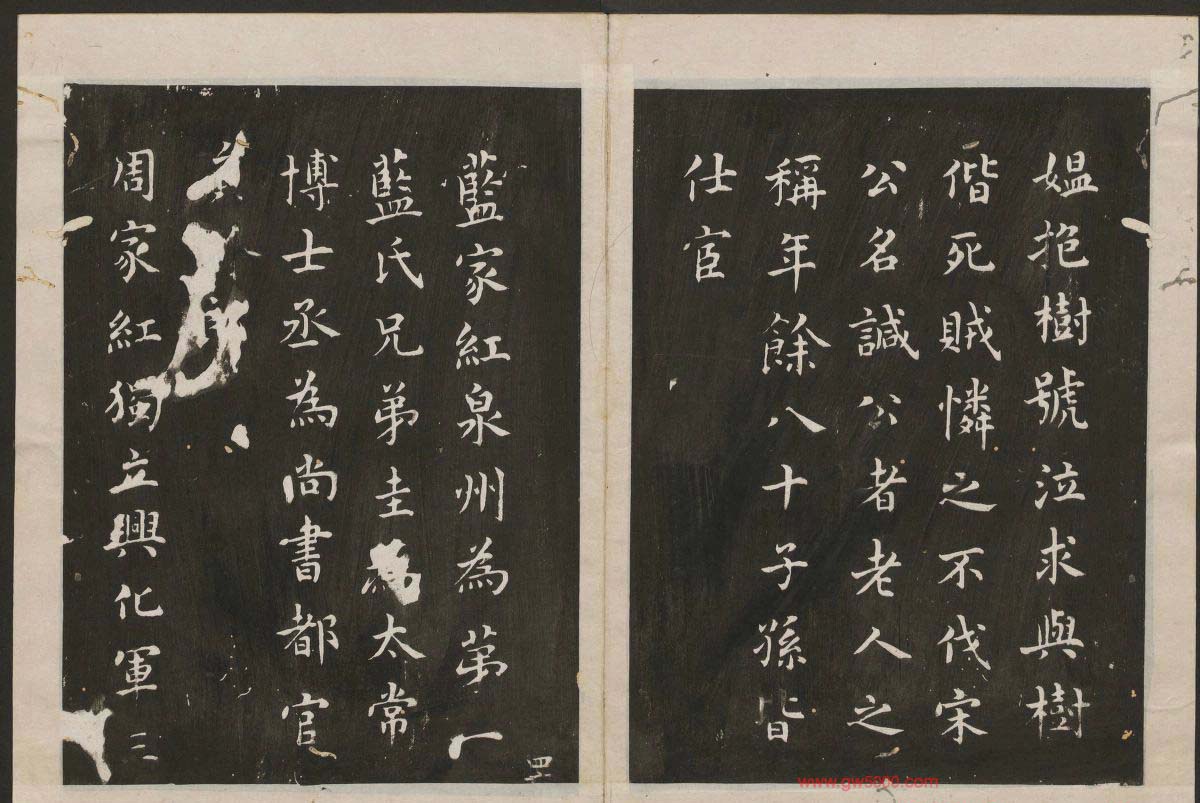 媼抱樹號泣求與樹
偕死賊憐之不伐宋
公名諴公者老人之
稱年餘八十子孫皆
仕宦
藍家紅泉州為第一
藍氏兄弟圭為太常
博士丞為尚書都官
員
周家紅獨立興化軍三
四
www.gw5000.com